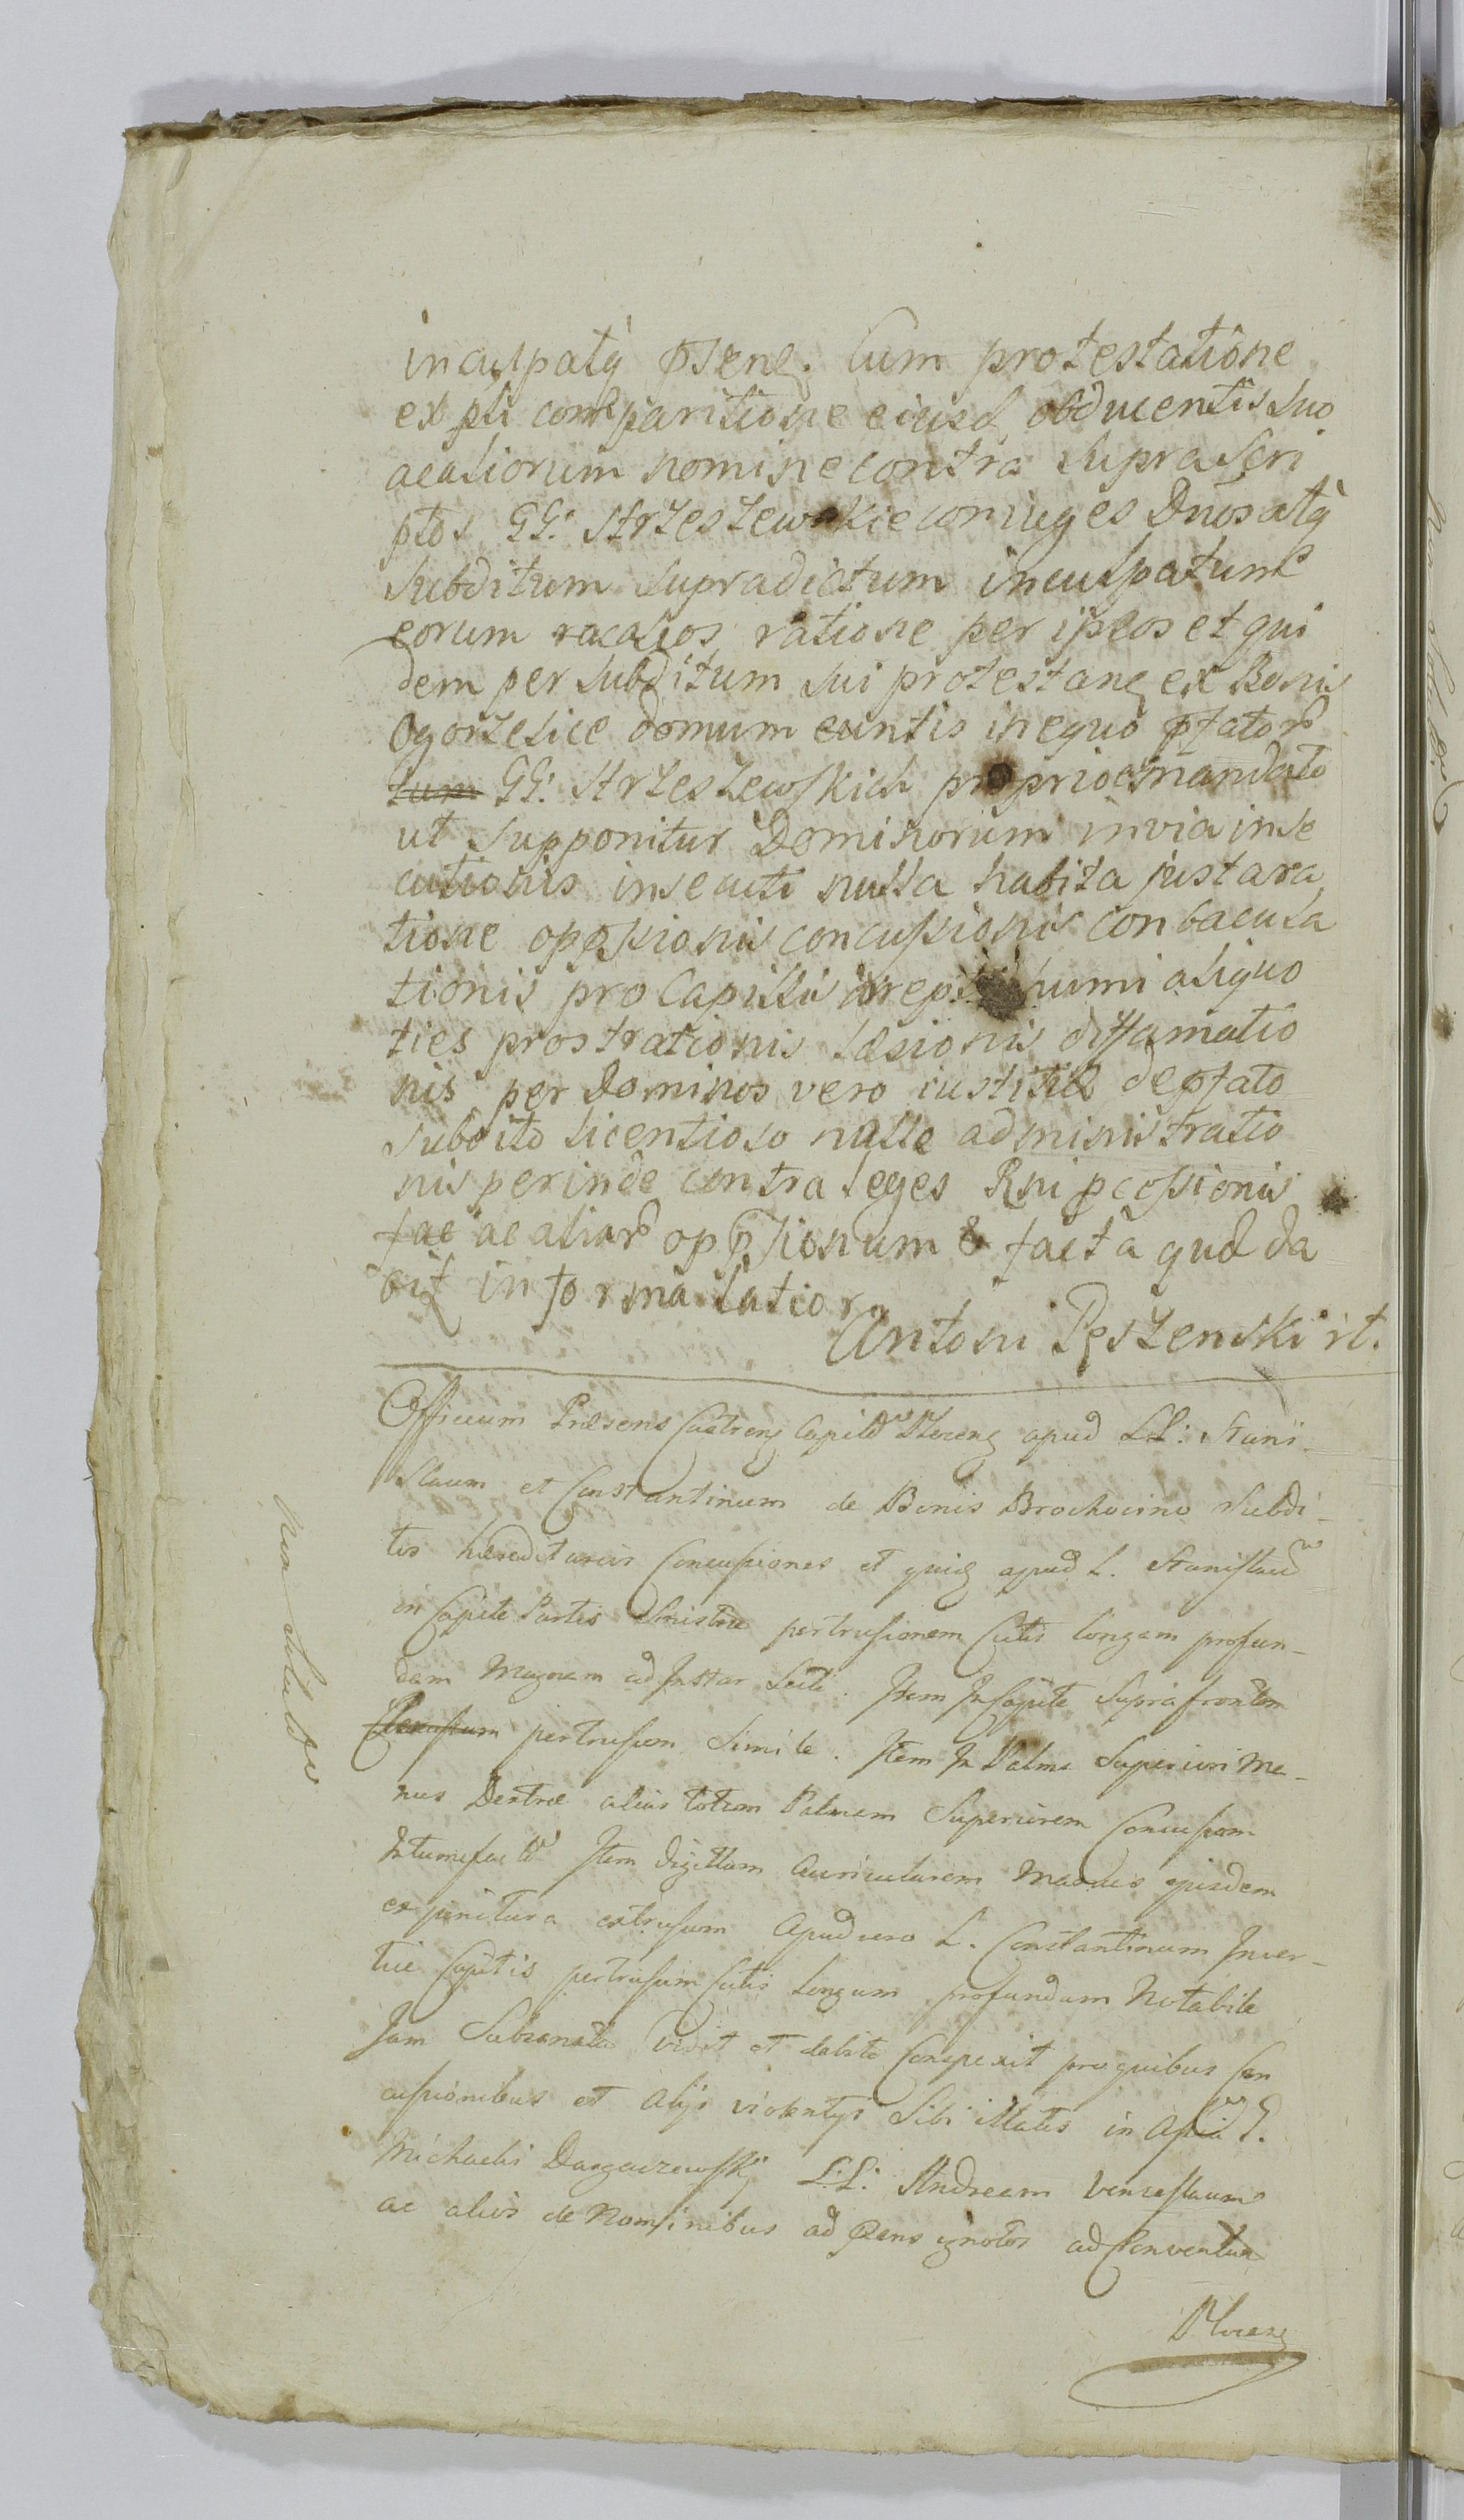 inculpatq̀ psene. Cum protestatione
ex pti comparitione eiusd obducentis suo
ac aliorum nomine contra supra scri
ptos GG: Strzeszewskie coniuges Dnos atq̀
subditum supradictum inculpatum
eorum ac alios ratione per ipsos et qui
dem per subditum sui protestane ex Bonis
Ogorzelice domum euntis in equo pfator
GG: Strzeszewskich proprioq mandato
ut supponitur Dominorum in via inse
cutionis insecuti nulla habita justa ra
tione oppssionis concussionis conbacula
tionis pro Capillis humi aliquo
ties prostrationis læsionis diffamatio
nis per Dominos vero iustitiæ de pfato
subdito licentioso nullæ administratio
nis perinde contra leges Rni pcessionis
fac ac aliar oppssionum & facta qud da
bit in forma latiore
Antoni Pęszenski rt.
Officium Præsens Castrens Capitle Plocens apud LL: Stani-
slaum et Constantinum de Bonis Brochocino Subdi-
tos hæreditarios Concussiones et quid apud L. Stanislaū
in Capite Partis Sinistræ pertrusionem Cutis longam profun-
dam Magnam ad Instar Item In Capite Supra frontem
pertrusum Simile. Item In Palma Superiori Ma-
nus Dextræ alias totam Palmam Superiorem Concussam
Intumefactā Item digittum Auricularem Manus ejusdem
ex junctura extrusum Apud vero L. Constantinum In ver-
tice Capitis pertrusum Cutis Longum profundum Notabile
Jam Subsanatū vidit et debite Conspexit pro quibus Con
cussionibus et alijs violentijs Sibi illatis in G.
Michaelis LL: Andream Venceslaum
ac alios de Nominibus ad præns ignotos ad Conventū
Plocens
Non Solut